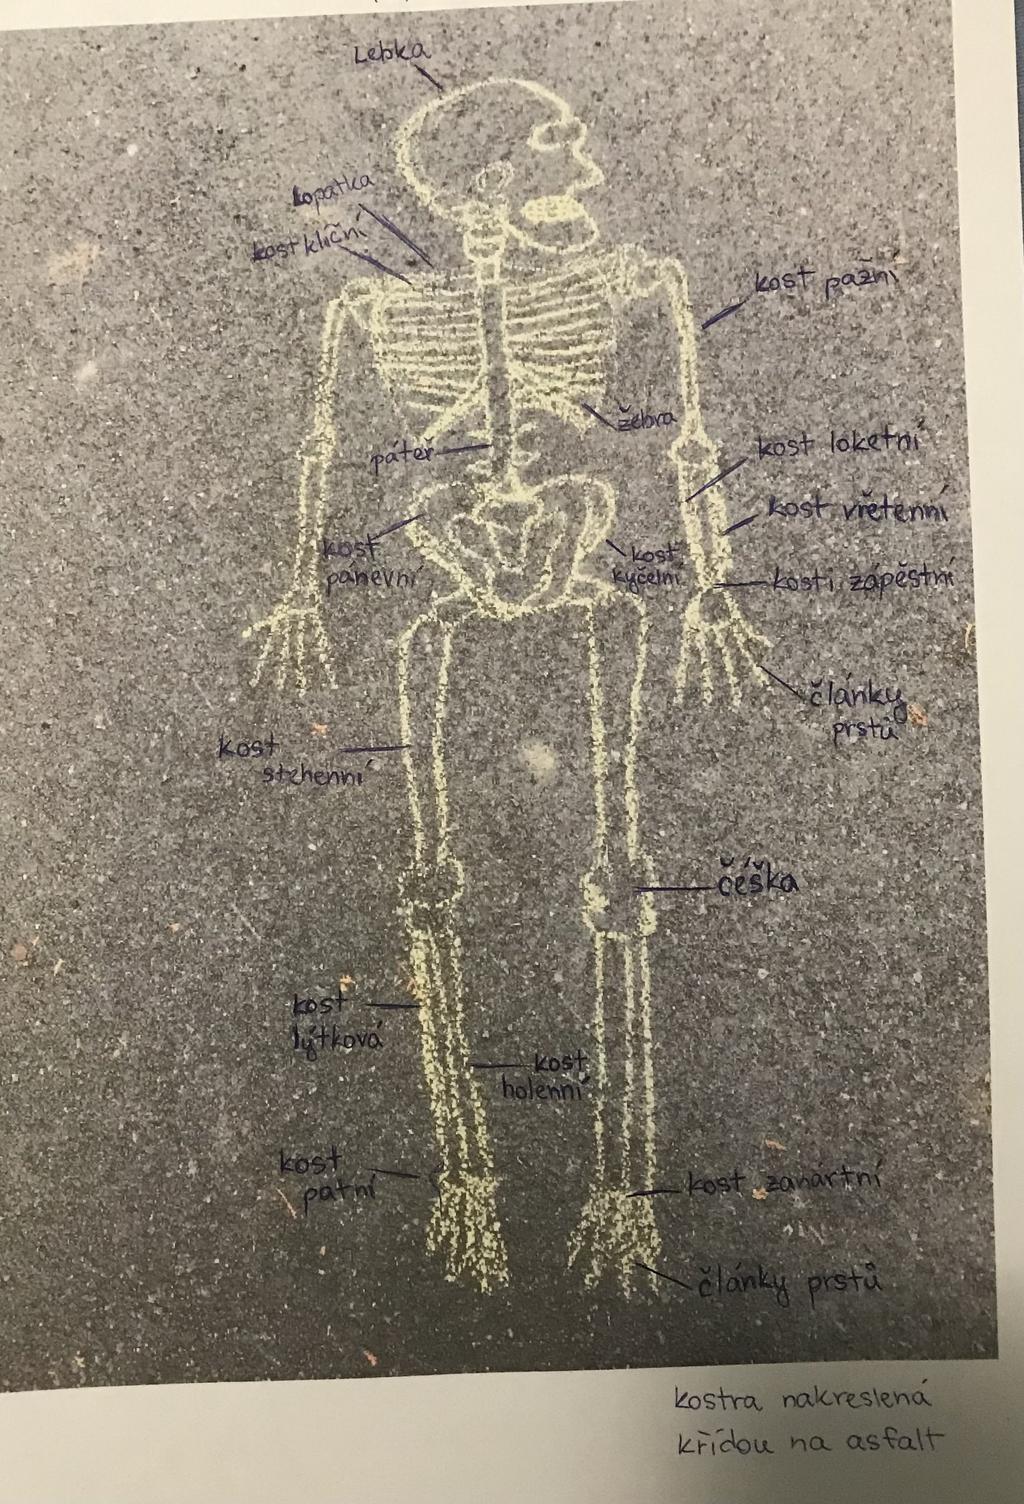 Lebka
lopatka
kost klíční
kost pažní
žebra
páteř
kost loketní
kost vřetenní
kost
pánevní
kost
kyčelní
kosti zápěstní
články
prstů
kost
stehenní
čéška
kost
lýtková
kost
holenní
kost
patní
kost zanártní
články prstů
kostra nakreslená
křídou na asfalt